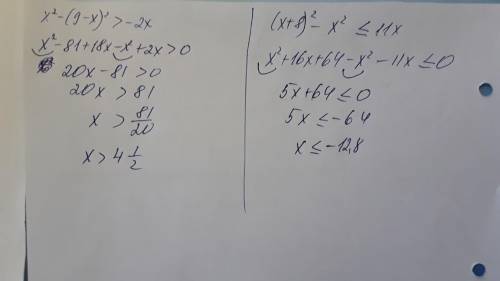 x² - (9-x)² > -2x
x² - 81 + 18x - x² + 2x > 0
20x - 81 > 0
20x > 81
x > 81/20
x > 4 1/2
(x+8)² - x² ≤ 11x
x² + 16x + 64 - x² - 11x ≤ 0
5x + 64 ≤ 0
5x ≤ -64
x ≤ -12,8